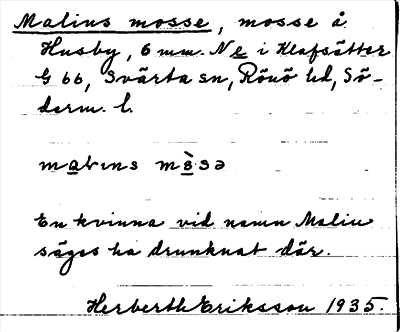 Malins mosse, mosse å
Husby, 6 mm. Ne i Klafsätter
G 66, Svärta sn, Rönö hd, Sö-
derm. l.
malins mòsə
En kvinna vid namn Malin
säges ha drunknat där.
Herberth Eriksson 1935.